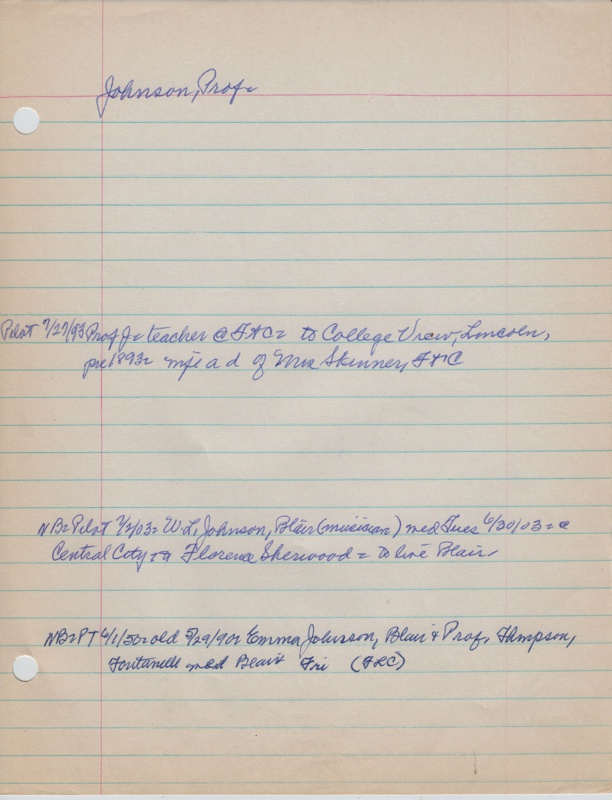 Johnson, Prof=
Pilot 7/27/93 Prof J= teacher @ Ft C= to College View, Lincoln,
pre 1893= wife a d of Mrs Skinner, Ft C
NB= Pilot 7/2/03= W. L. Johnson, Blair (musician) med Tues 6/30/03= @
Central City = Florence Sherwood = to live Blair
NB= PT 6/1/50= old 5/29/90= Emma Johnson, Blair & Prof.
Fontanelle med Blair Fri